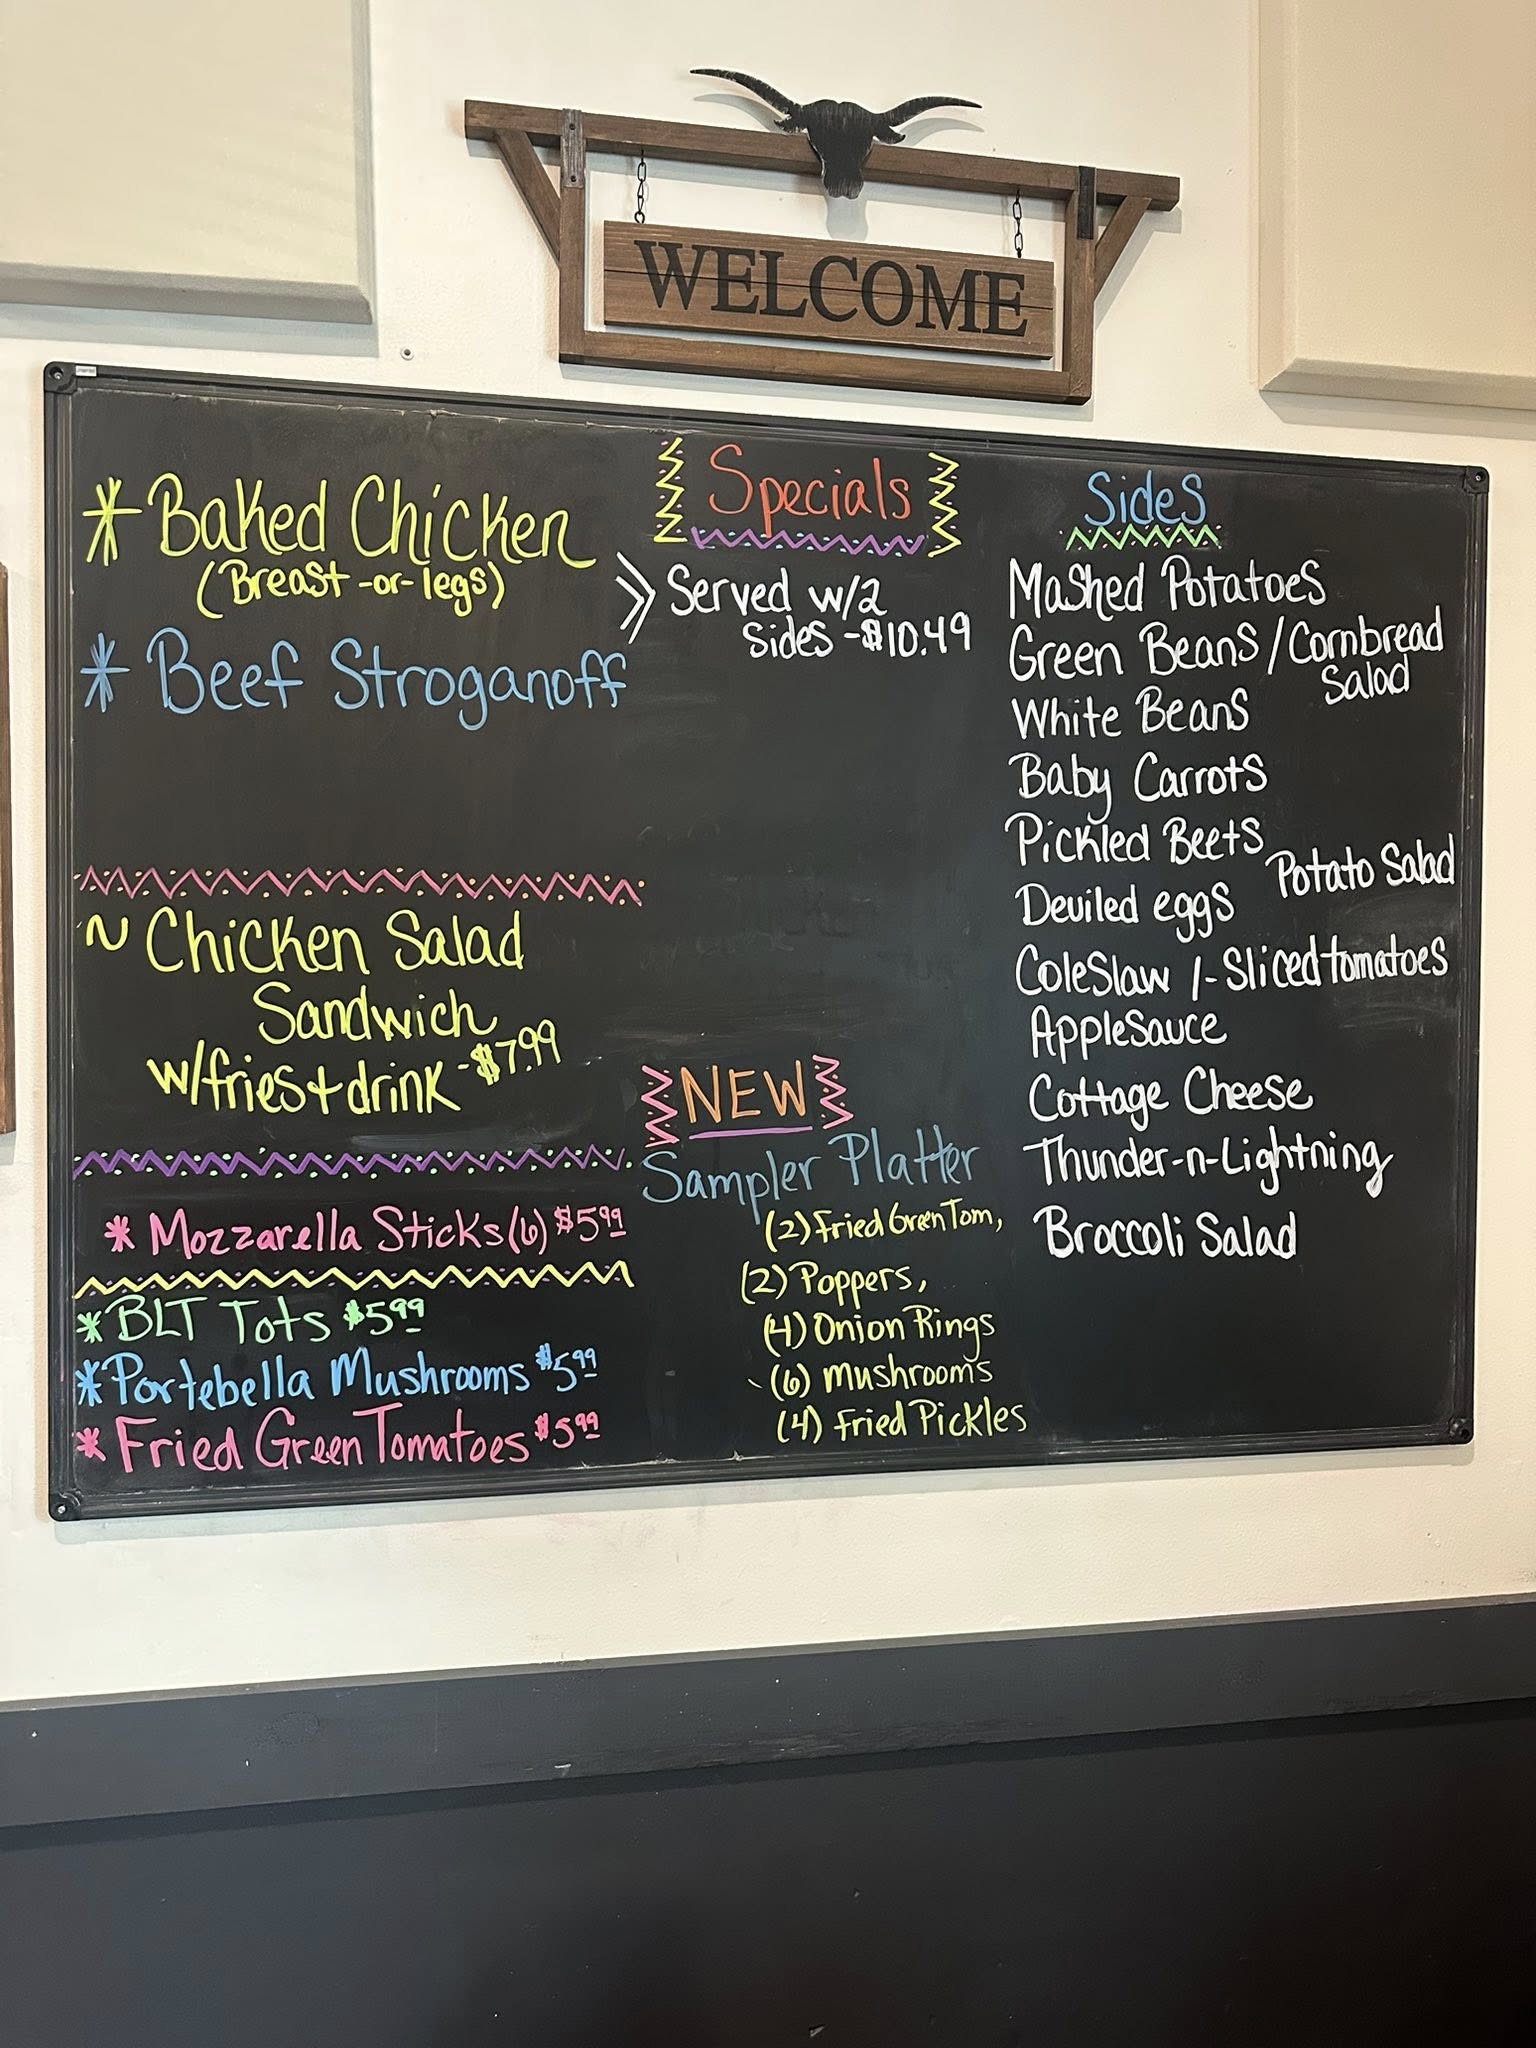 WELCOME
* Baked Chicken
(Breast -or- legs)
* Beef Stroganoff
~ Chicken Salad
Sandwich
w/fries + drink - $7.99
* Mozzarella Sticks (6) $5.99
* BLT Tots $5.99
* Portebella Mushrooms $5.99
* Fried Green Tomatoes $5.99
Specials
>> Served w/2
sides - $10.49
NEW
Sampler Platter
(2) Fried Green Tom,
(2) Poppers,
(4) Onion Rings
(6) Mushrooms
(4) Fried Pickles
Sides
Mashed Potatoes
Green Beans / Cornbread
Salad
White Beans
Baby Carrots
Pickled Beets
Potato Salad
Deviled eggs
ColeSlaw /- Sliced tomatoes
AppleSauce
Cottage Cheese
Thunder-n-Lightning
Broccoli Salad